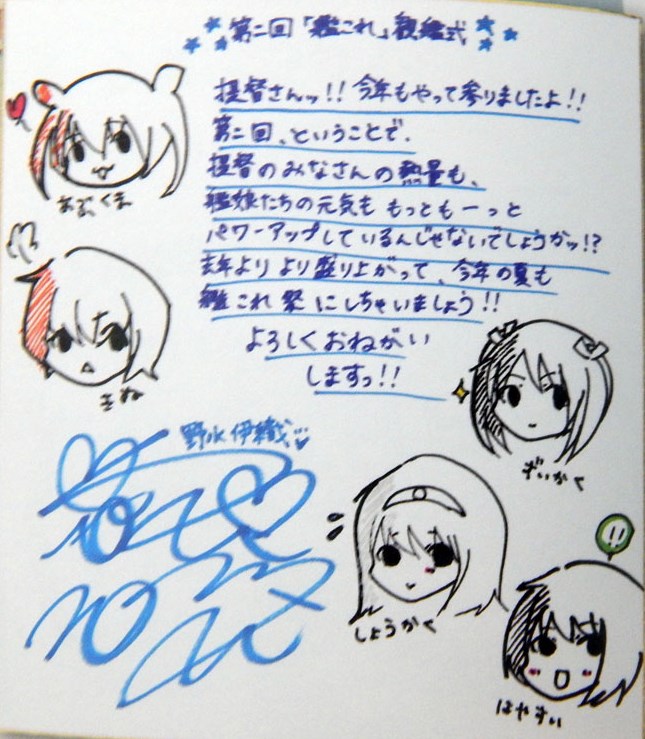 第二回「艦これ」観艦式
提督さんッ!! 今年もやって参りましたよ!!
第二回、ということで、
提督のみなさんの熱量も、
艦娘たちの元気も もっともーっと
パワーアップしているんじゃないでしょうかッ!?
去年より より盛り上がって、今年の夏も
艦これ祭にしちゃいましょう!!
よろしくおねがい
しますっ!!
あぶくま
きぬ
野水伊織
ずいかく
しょうかく
!!
はやすい